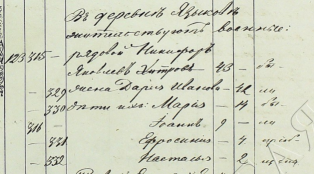 Въ деревнѣ Языковѣ
жительствуютъ военные:
123 315 – рядовой Никифоръ
Яковлевъ Хитровъ – 43 – бы.
– 329 жена Дарья Иванова – 42 –
– 330 дѣти ихъ: Марья – 14 бы.
316 – Іоаннъ – 9 –
– 331 Ефросинія – 4
– 332 Настасья – 2